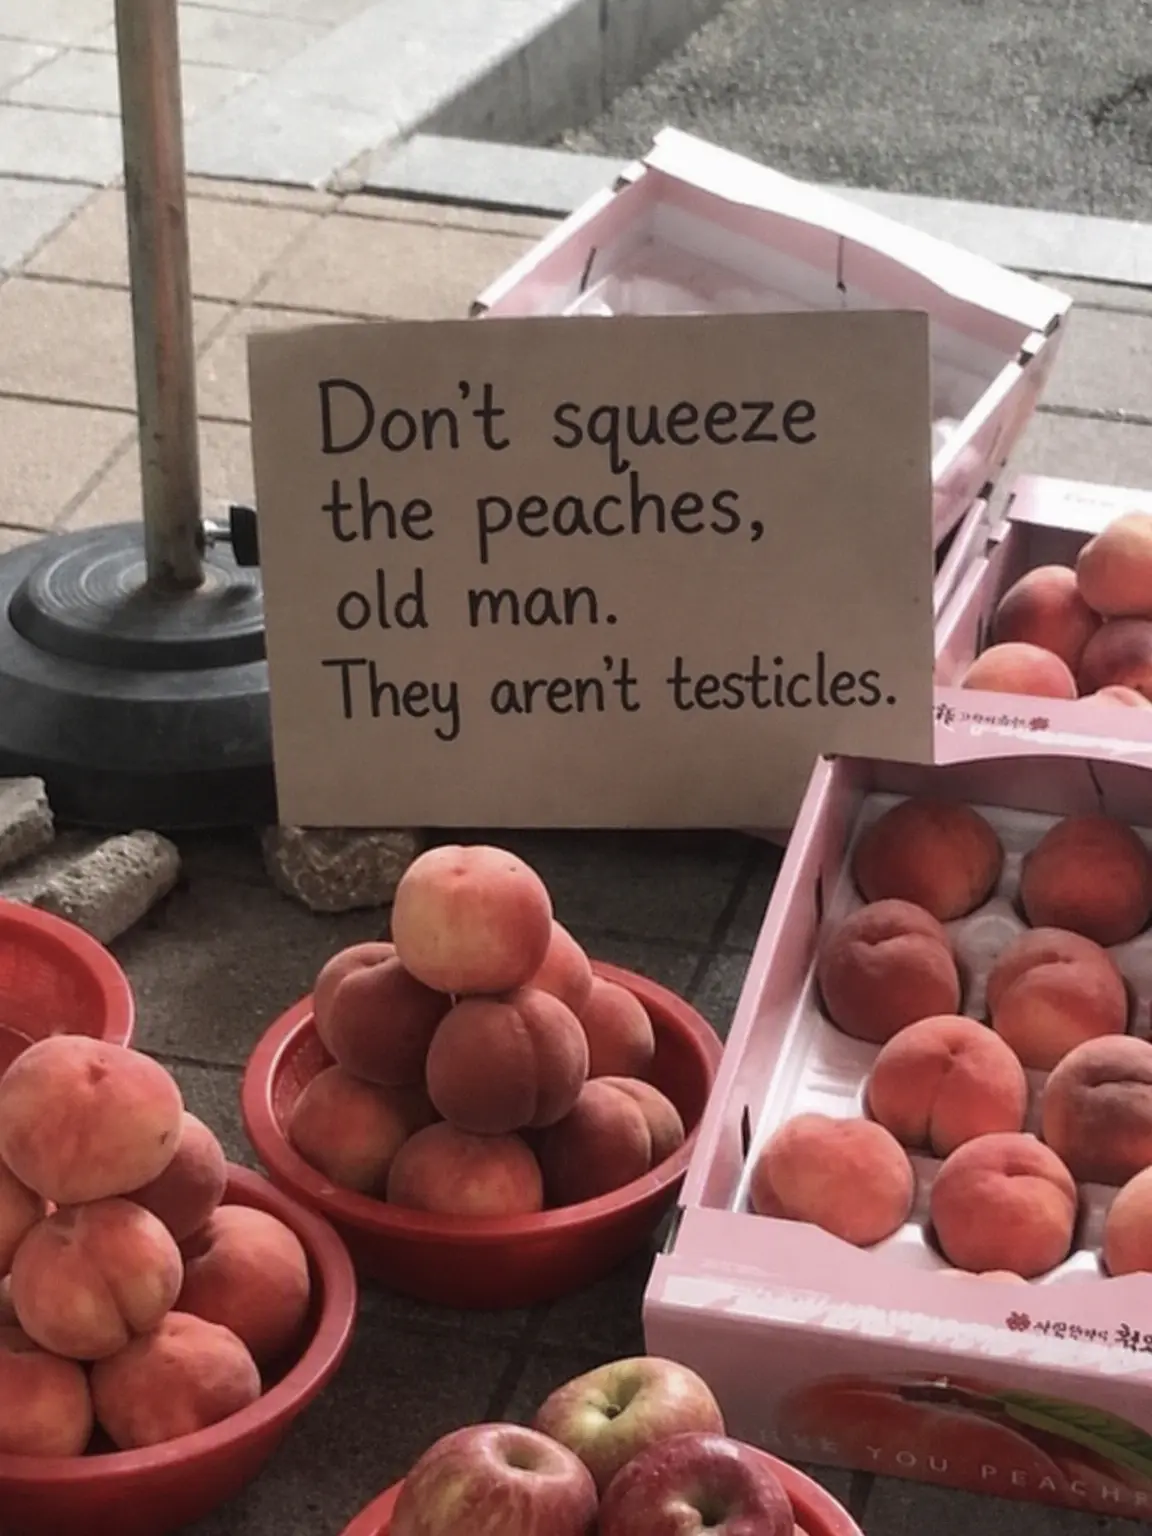 Don't squeeze
the peaches,
old man.
They aren't testicles.
YOU PEACH